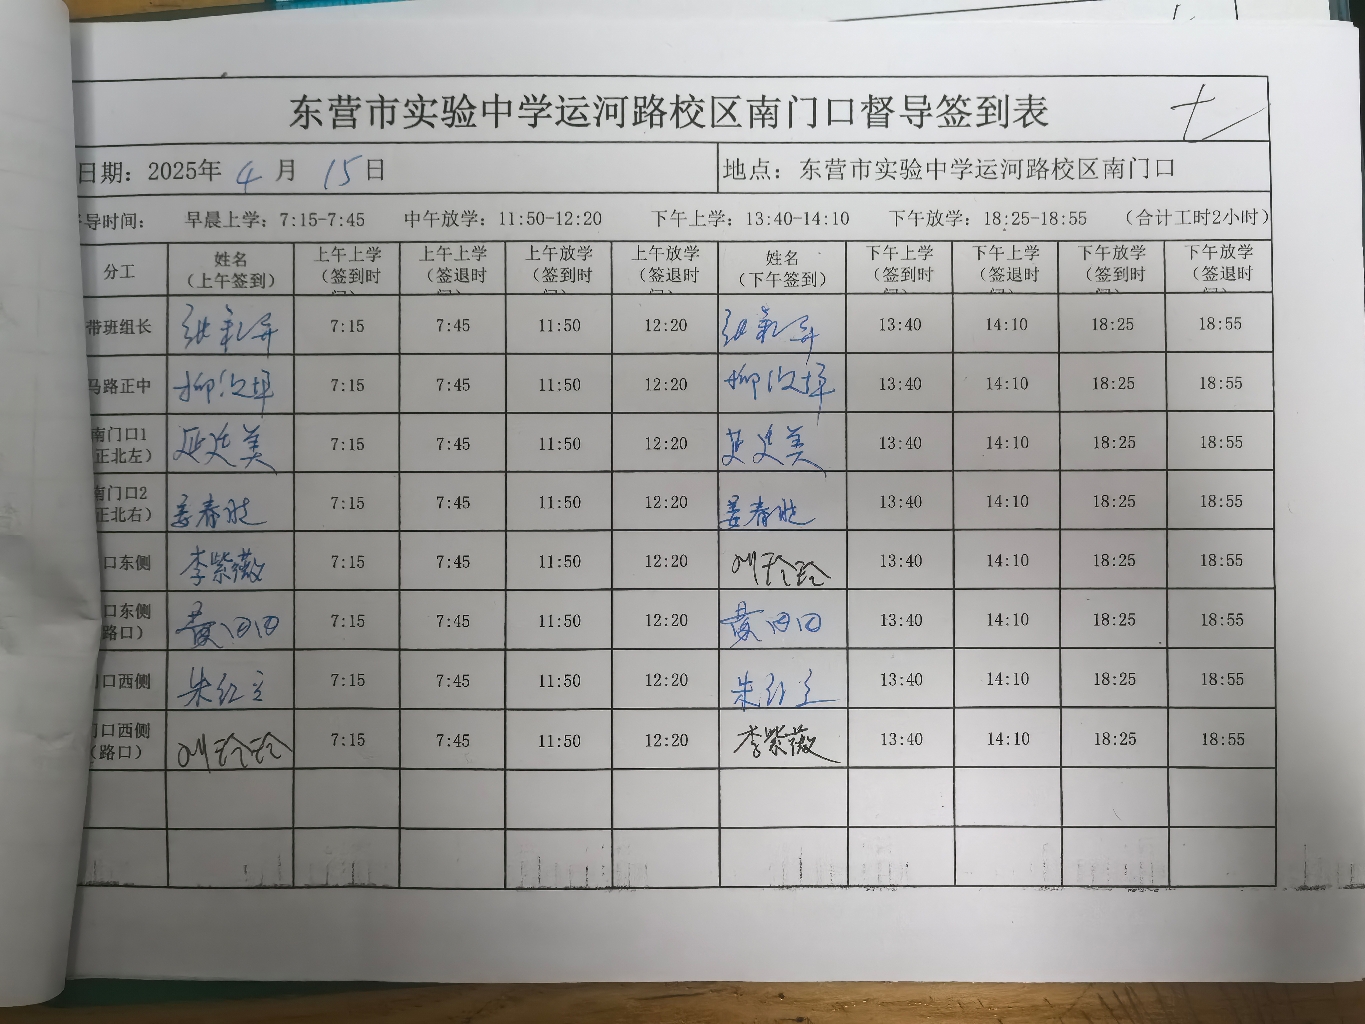 东营市实验中学运河路校区南门口督导签到表
七
日期：2025年 4 月 15日 地点：东营市实验中学运河路校区南门口
导时间： 早晨上学：7:15-7:45 中午放学：11:50-12:20 下午上学：13:40-14:10 下午放学：18:25-18:55 （合计工时2小时）
分工 姓名（上午签到） 上午上学（签到时 上午上学（签退时 上午放学（签到时 上午放学（签退时 姓名（下午签到） 下午上学（签到时 下午上学（签退时 下午放学（签到时 下午放学（签退时
带班组长 7:15 7:45 11:50 12:20 13:40 14:10 18:25 18:55
马路正中 7:15 7:45 11:50 12:20 13:40 14:10 18:25 18:55
南门口1 正北左） 7:15 7:45 11:50 12:20 13:40 14:10 18:25 18:55
南门口2 正北右） 姜春 7:15 7:45 11:50 12:20 姜春 13:40 14:10 18:25 18:55
口东侧 李紫薇 7:15 7:45 11:50 12:20 刘玲玲 13:40 14:10 18:25 18:55
口东侧 路口） 7:15 7:45 11:50 12:20 13:40 14:10 18:25 18:55
口西侧 朱红立 7:15 7:45 11:50 12:20 朱红立 13:40 14:10 18:25 18:55
口西侧（路口） 刘玲玲 7:15 7:45 11:50 12:20 李紫薇 13:40 14:10 18:25 18:55